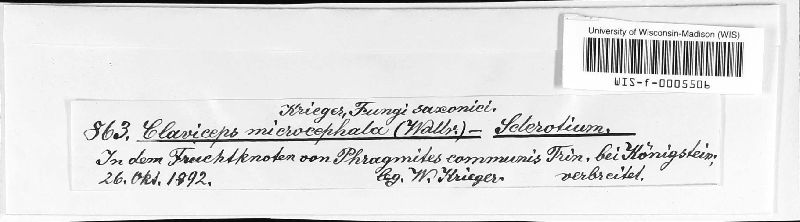 University of Wisconsin-Madison (WIS)
WIS-f-0005506
Krieger, Fungi saxonici.
863. Claviceps microcephala (Wallr.) – Sclerotium.
In dem Fruchtknoten von Phragmites communis Trin. bei Königstein,
26. Okt. 1892. leg. W. Krieger. verbreitet.